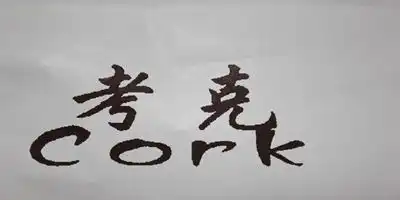 考克
Cork